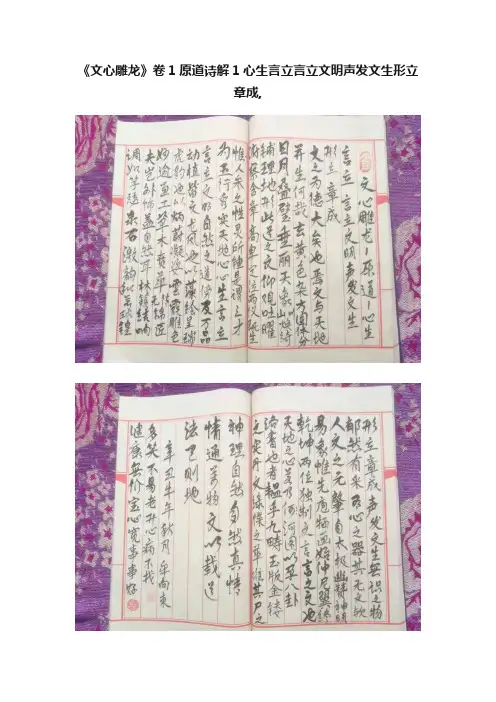 《文心雕龙》卷1原道诗解1心生言立言立文明声发文生形立
章成,
文心雕龙1原道1心生
言立言立文明声发文生
形立章成
文之为德大矣也焉文与天地
并生何哉玄黄色杂方圆体分
日月叠璧垂丽天象山川焕绮
辅理地形此道之文仰观吐曜
俯察含章高卑定位两仪既生
惟人参之性灵所锺是谓三才
为五行秀实天地心心生言立
言立文明自然之道傍及万品
动植皆文龙凤也以藻绘呈瑞
虎豹也以炳蔚凝姿云霞雕色
妙逾画工草木贲华无待锦匠
夫岂外饰盖自然耳林籁结响
调如竽瑟泉石激韵和若球锽
形立章成声发文生无识之物
郁然有采有心之器其无文欤
人文之元肇自太极幽赞神明
易象惟先庖牺画始仲尼翼终
乾坤两位独制文言言之文也
天地之心若乃河图孕八卦
洛书也者韫乎九畴玉版金镂
之实丹文绿牒之华谁其尸之
神理自然自然真情
情通万物文以载道
则地
辛丑牛年秋月牟尚東
多笑不易老开心病不找
健康无价宝心宽事事好